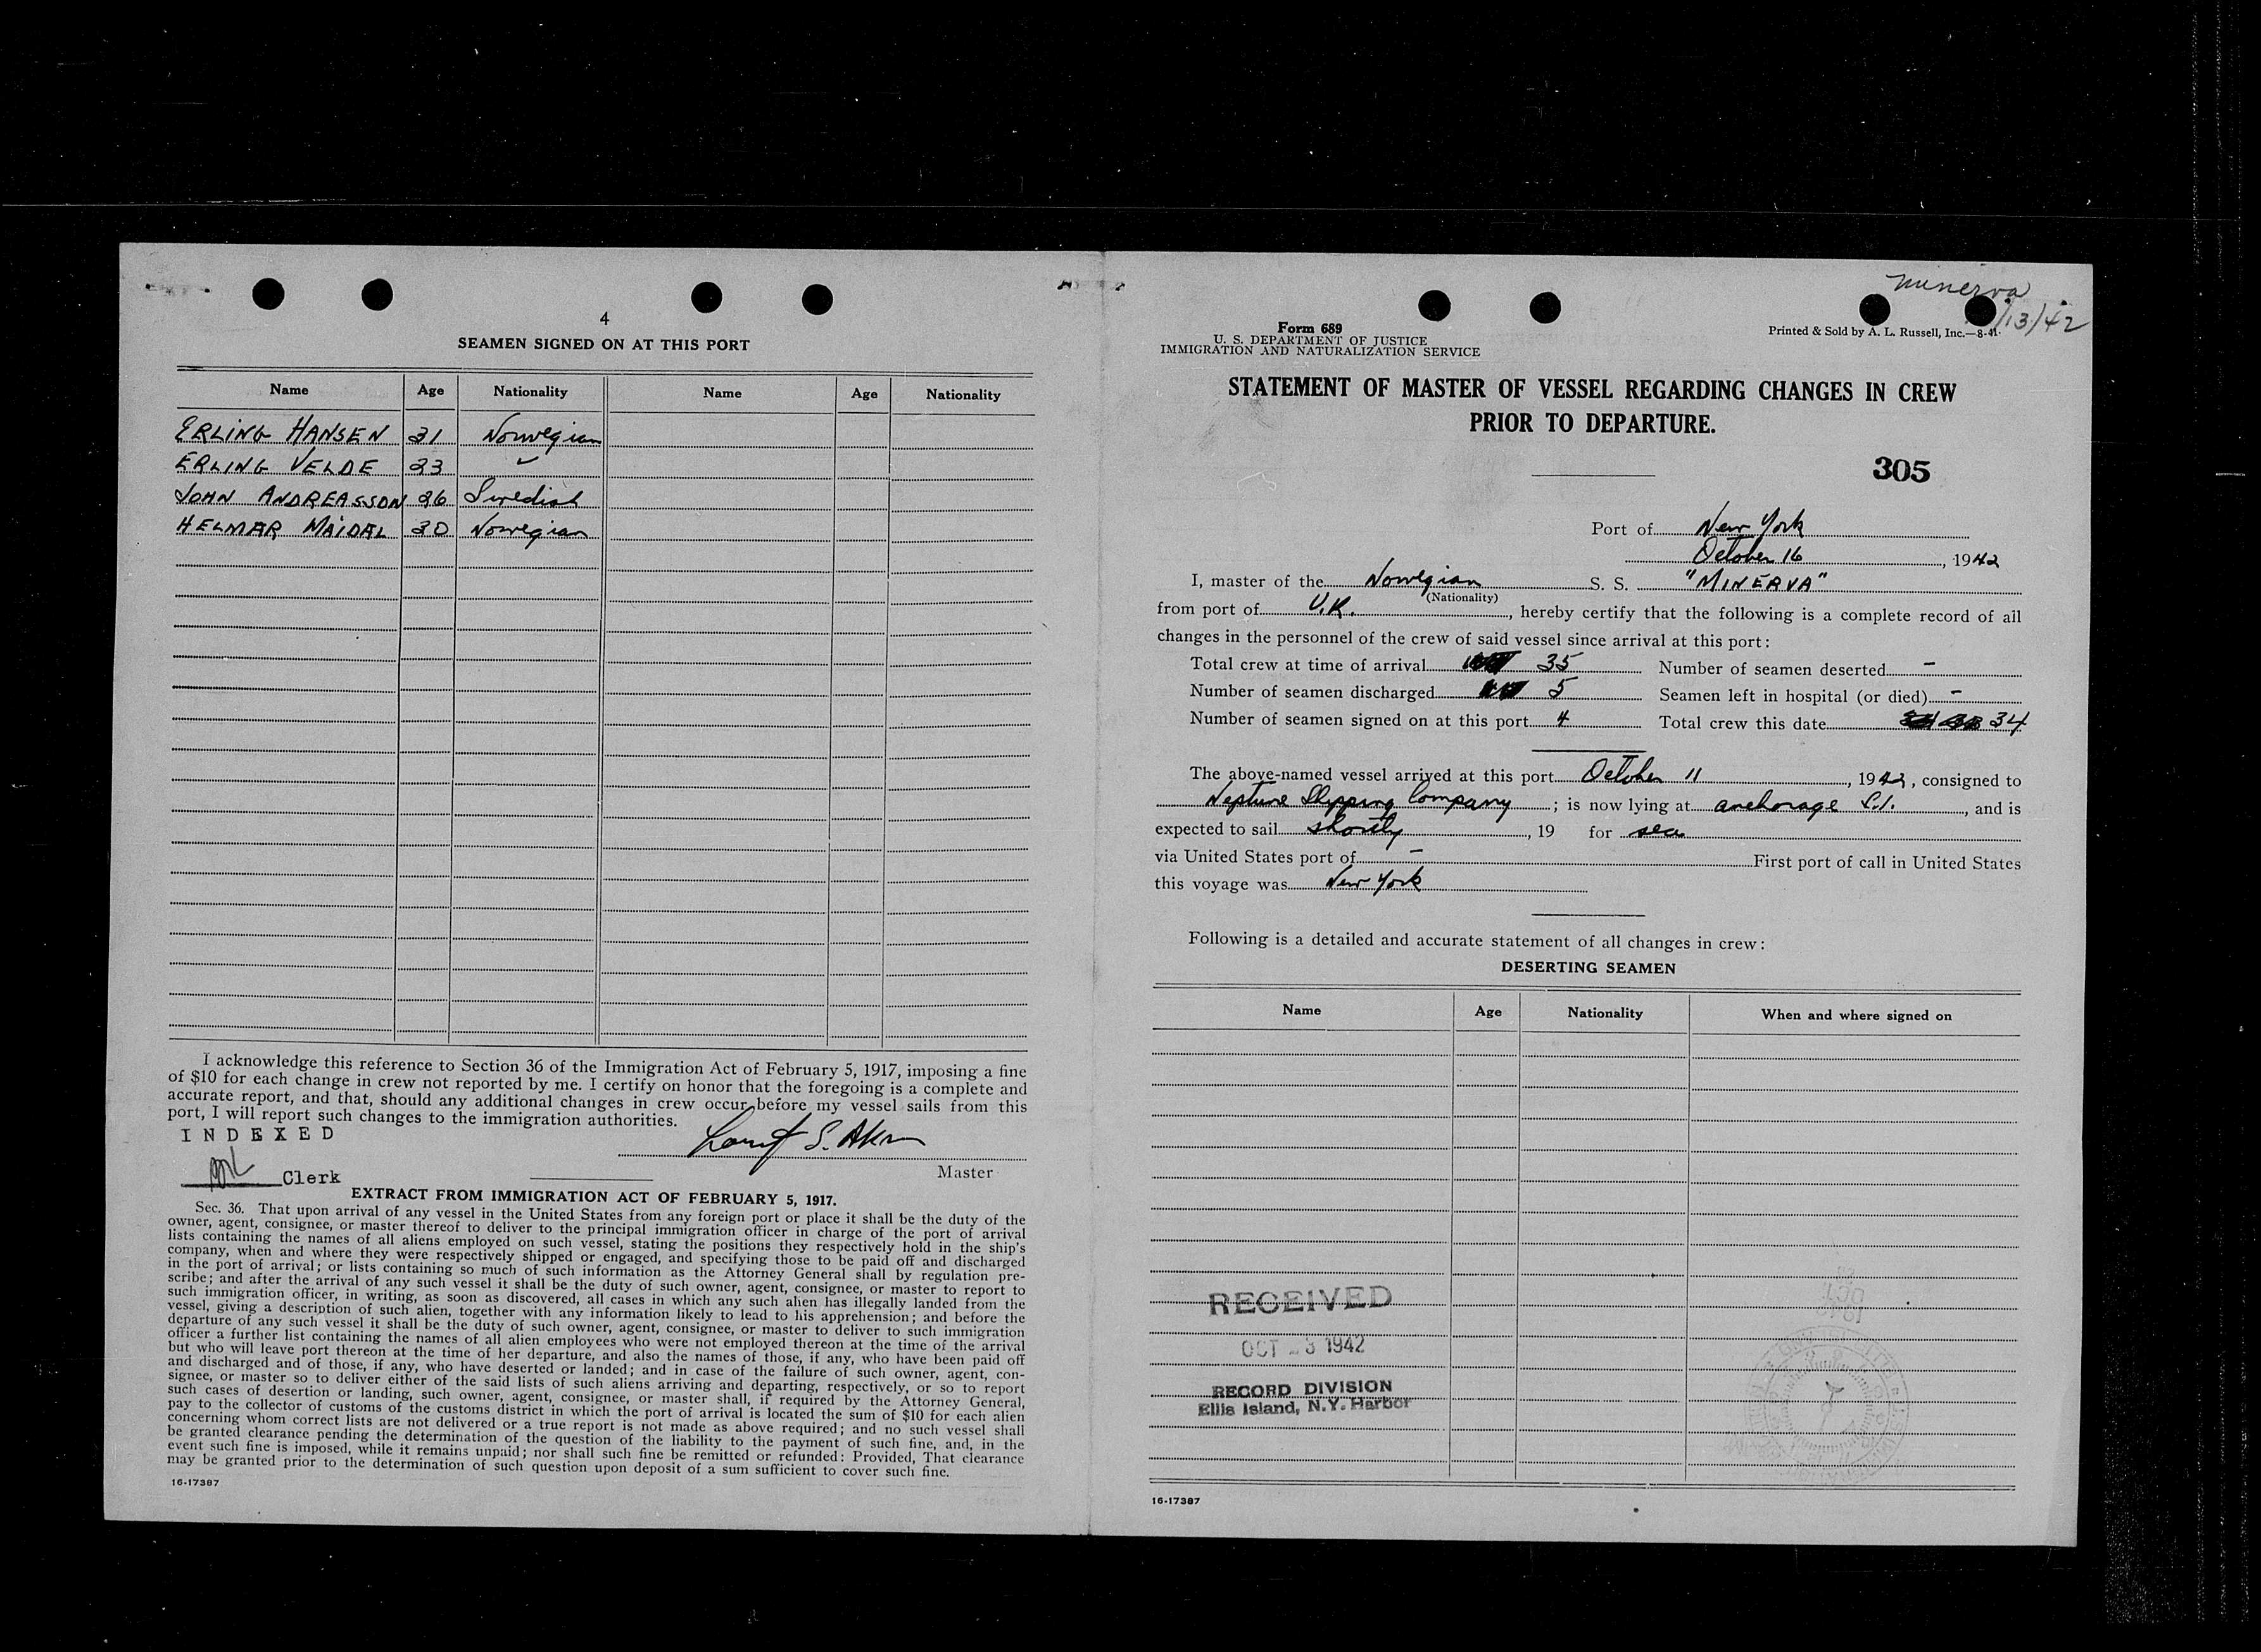 4
SEAMEN SIGNED ON AT THIS PORT
Name Age Nationality Name Age Nationality
ERLING HANSEN 31 Norwegian
ERLING VELDE 23 "
JOHN ANDREASSON 26 Swedish
HELMAR MAIDAL 30 Norwegian
I acknowledge this reference to Section 36 of the Immigration Act of February 5, 1917, imposing a fine
of $10 for each change in crew not reported by me. I certify on honor that the foregoing is a complete and
accurate report, and that, should any additional changes in crew occur before my vessel sails from this
port, I will report such changes to the immigration authorities.
INDEXED
Clerk
Master
EXTRACT FROM IMMIGRATION ACT OF FEBRUARY 5, 1917.
Sec. 36. That upon arrival of any vessel in the United States from any foreign port or place it shall be the duty of the
owner, agent, consignee, or master thereof to deliver to the principal immigration officer in charge of the port of arrival
lists containing the names of all aliens employed on such vessel, stating the positions they respectively hold in the ship's
company, when and where they were respectively shipped or engaged, and specifying those to be paid off and discharged
in the port of arrival; or lists containing so much of such information as the Attorney General shall by regulation pre-
scribe; and after the arrival of any such vessel it shall be the duty of such owner, agent, consignee, or master to report to
such immigration officer, in writing, as soon as discovered, all cases in which any such alien has illegally landed from the
vessel, giving a description of such alien, together with any information likely to lead to his apprehension; and before the
departure of any such vessel it shall be the duty of such owner, agent, consignee, or master to deliver to such immigration
officer a further list containing the names of all alien employees who were not employed thereon at the time of the arrival
but who will leave port thereon at the time of her departure, and also the names of those, if any, who have been paid off
and discharged and of those, if any, who have deserted or landed; and in case of the failure of such owner, agent, con-
signee, or master so to deliver either of the said lists of such aliens arriving and departing, respectively, or so to report
such cases of desertion or landing, such owner, agent, consignee, or master shall, if required by the Attorney General,
pay to the collector of customs of the customs district in which the port of arrival is located the sum of $10 for each alien
concerning whom correct lists are not delivered or a true report is not made as above required; and no such vessel shall
be granted clearance pending the determination of the question of the liability to the payment of such fine, and, in the
event such fine is imposed, while it remains unpaid; nor shall such fine be remitted or refunded: Provided, That clearance
may be granted prior to the determination of such question upon deposit of a sum sufficient to cover such fine.
16-17387
Minerva
/13/42
Form 689
U. S. DEPARTMENT OF JUSTICE
IMMIGRATION AND NATURALIZATION SERVICE
Printed & Sold by A. L. Russell, Inc.—8-41
STATEMENT OF MASTER OF VESSEL REGARDING CHANGES IN CREW
PRIOR TO DEPARTURE.
305
Port of New York
October 16, 1942
I, master of the Norwegian S. S. "MINERVA"
(Nationality)
from port of U.K., hereby certify that the following is a complete record of all
changes in the personnel of the crew of said vessel since arrival at this port:
Total crew at time of arrival 35 Number of seamen deserted -
Number of seamen discharged 5 Seamen left in hospital (or died) -
Number of seamen signed on at this port 4 Total crew this date 34
The above-named vessel arrived at this port October 11, 1942, consigned to
Neptune Shipping Company; is now lying at anchorage S.I., and is
expected to sail shortly, 19 for sea
via United States port of - First port of call in United States
this voyage was New York
Following is a detailed and accurate statement of all changes in crew:
DESERTING SEAMEN
Name Age Nationality When and where signed on
RECEIVED
OCT 23 1942
RECORD DIVISION
Ellis Island, N.Y. Harbor
16-17387